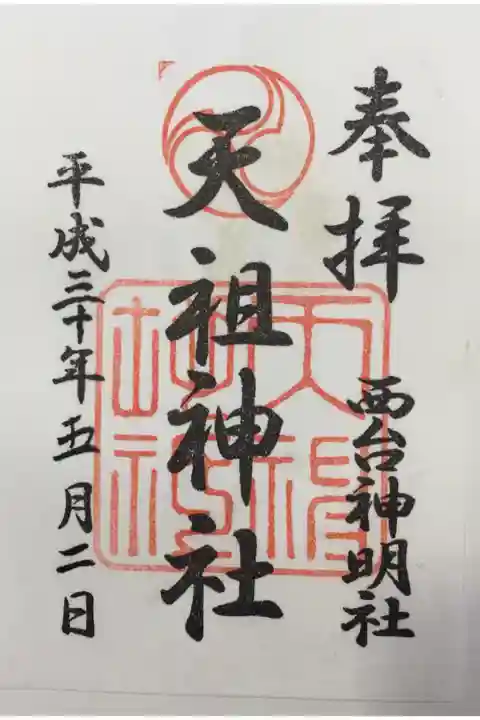 奉拝
西台神明社
天祖神社
平成三十年五月二日
天祖神社